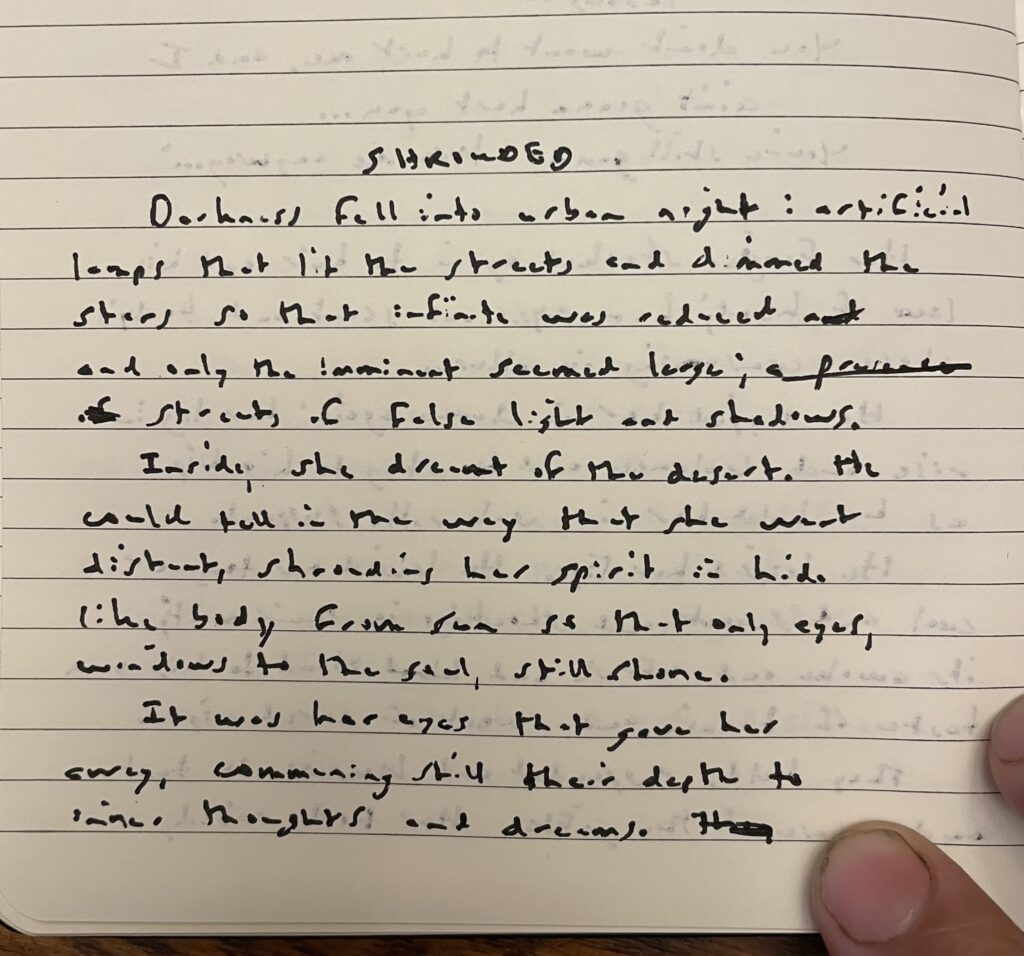 SHROUDED
Darkness fell into urban night : artificial
lamps that lit the streets and dimmed the
stars so that infinite was reduced
and only the imminent seemed large ; a presence
of streets of false light and shadows.
Inside, she dreamt of the desert. He
could tell in the way that she went
distant, shrouding her spirit in hide
like body from sun so that only eyes,
windows to the soul, still shone.
It was her eyes that gave her
away, communing still their depth to
inner thoughts and dreams.